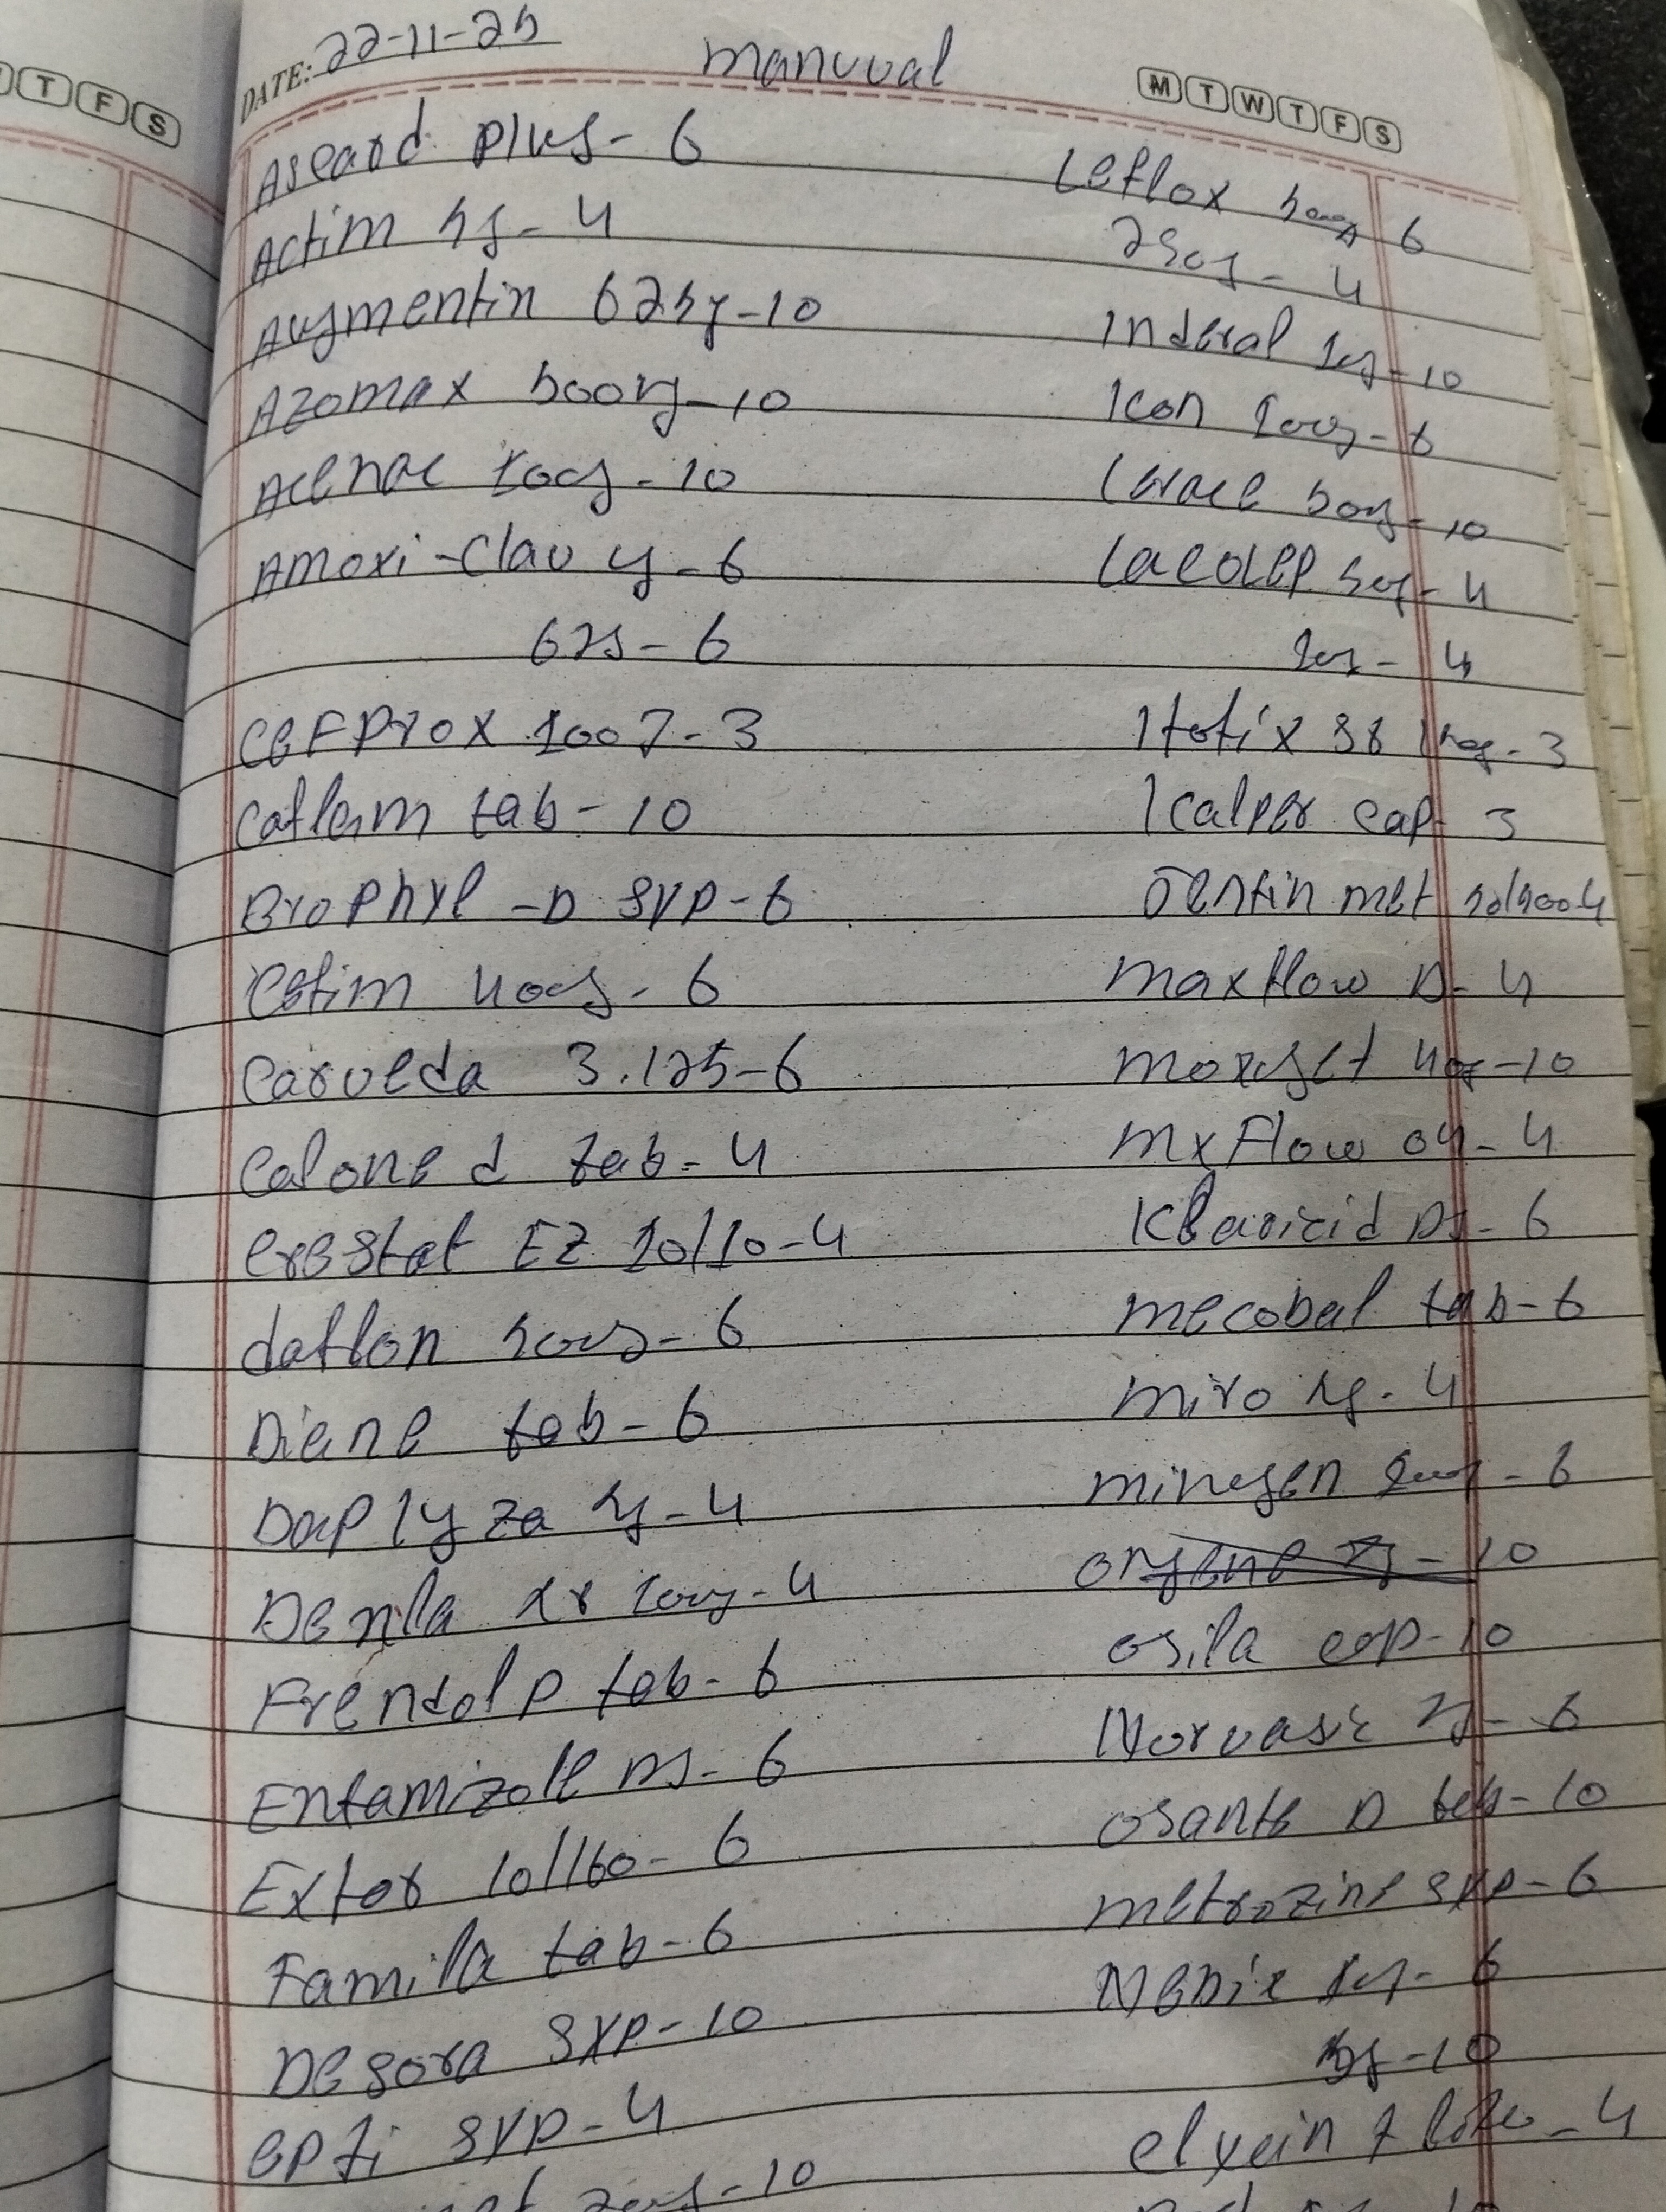 T F S
DATE: 22-11-25
manuual
M T W T F S
Ascard plus - 6
Actim 5g - 4
Augmentin 625g - 10
Azomax 500mg - 10
Acenac 100g - 10
Amoxi-Clav g - 6
625 - 6
CEFProx 100 7 - 3
Caflam tab - 10
BroPhyl -D syp - 6
Cefim 400g - 6
Carveda 3.125 - 6
Calone d tab - 4
Crestat EZ 10/10 - 4
daflon 500g - 6
Diane tab - 6
Daplyza g - 4
Denla xr 100g - 4
Frendol P tab - 6
Entamizole DS - 6
Extor 10/160 - 6
Famila tab - 6
Desora syp - 10
epti syp - 4
- 10
Leflox 500g 6
250g - 4
Inderal 10g - 10
Icon 100g - 6
50g - 10
Lacolep 50g - 4
- 4
SR - 3
Icalper cap 3
met 50/500 4
maxflow D - 4
moxiget 400g - 10
mxFlow 04 - 4
Klaricid DS - 6
mecobal tab - 6
miro g - 4
- 6
- 10
osila cap - 10
Norvasc g - 6
osante D tab - 10
metrozine syp - 6
- 6
5g - 10
- 4